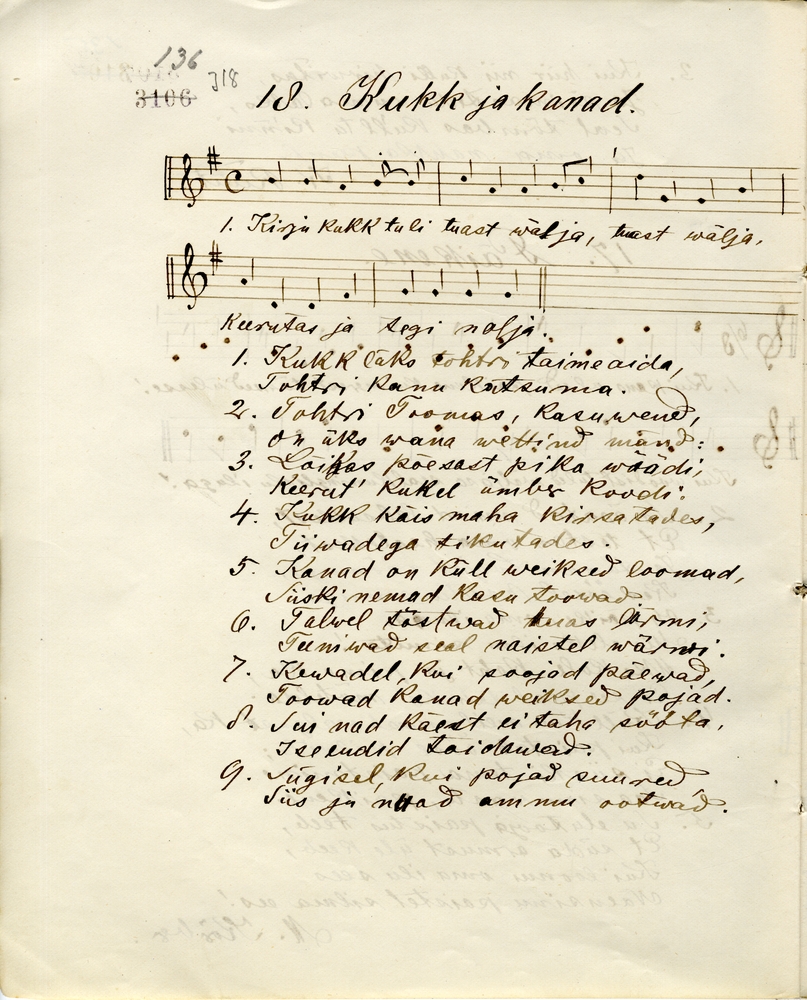 136
318
3106
18. Kukk ja kanad.
1. Kirju kukk tuli tuast wälja, tuast wälja,
Keerutas ja tegi nalja.
1. Kukk läks tohtri taimeaida,
Tohtri kanu katsuma.
2. Tohtri Toomas, kasuwend,
on üks wana wettind mänd:
3. Lõikas põesast pika wäädi,
Keerut' kukel ümber koodi.
4. Kukk käis maha kirsatades,
Tiiwadega tikutades.
5. Kanad on küll weiksed loomad,
Siiski nemad kasu toowad
6. Talwel tõstwad tuas lärmi,
Teeniwad seal naistel wärmi.
7. Kewadel, kui soojad päewad,
Toowad kanad weiksed pojad.
8. Sui nad käest ei taha sööta,
Iseendid toidawad.
9. Sügisel, kui pojad suured
Siis ju nuad ammu ootwad.